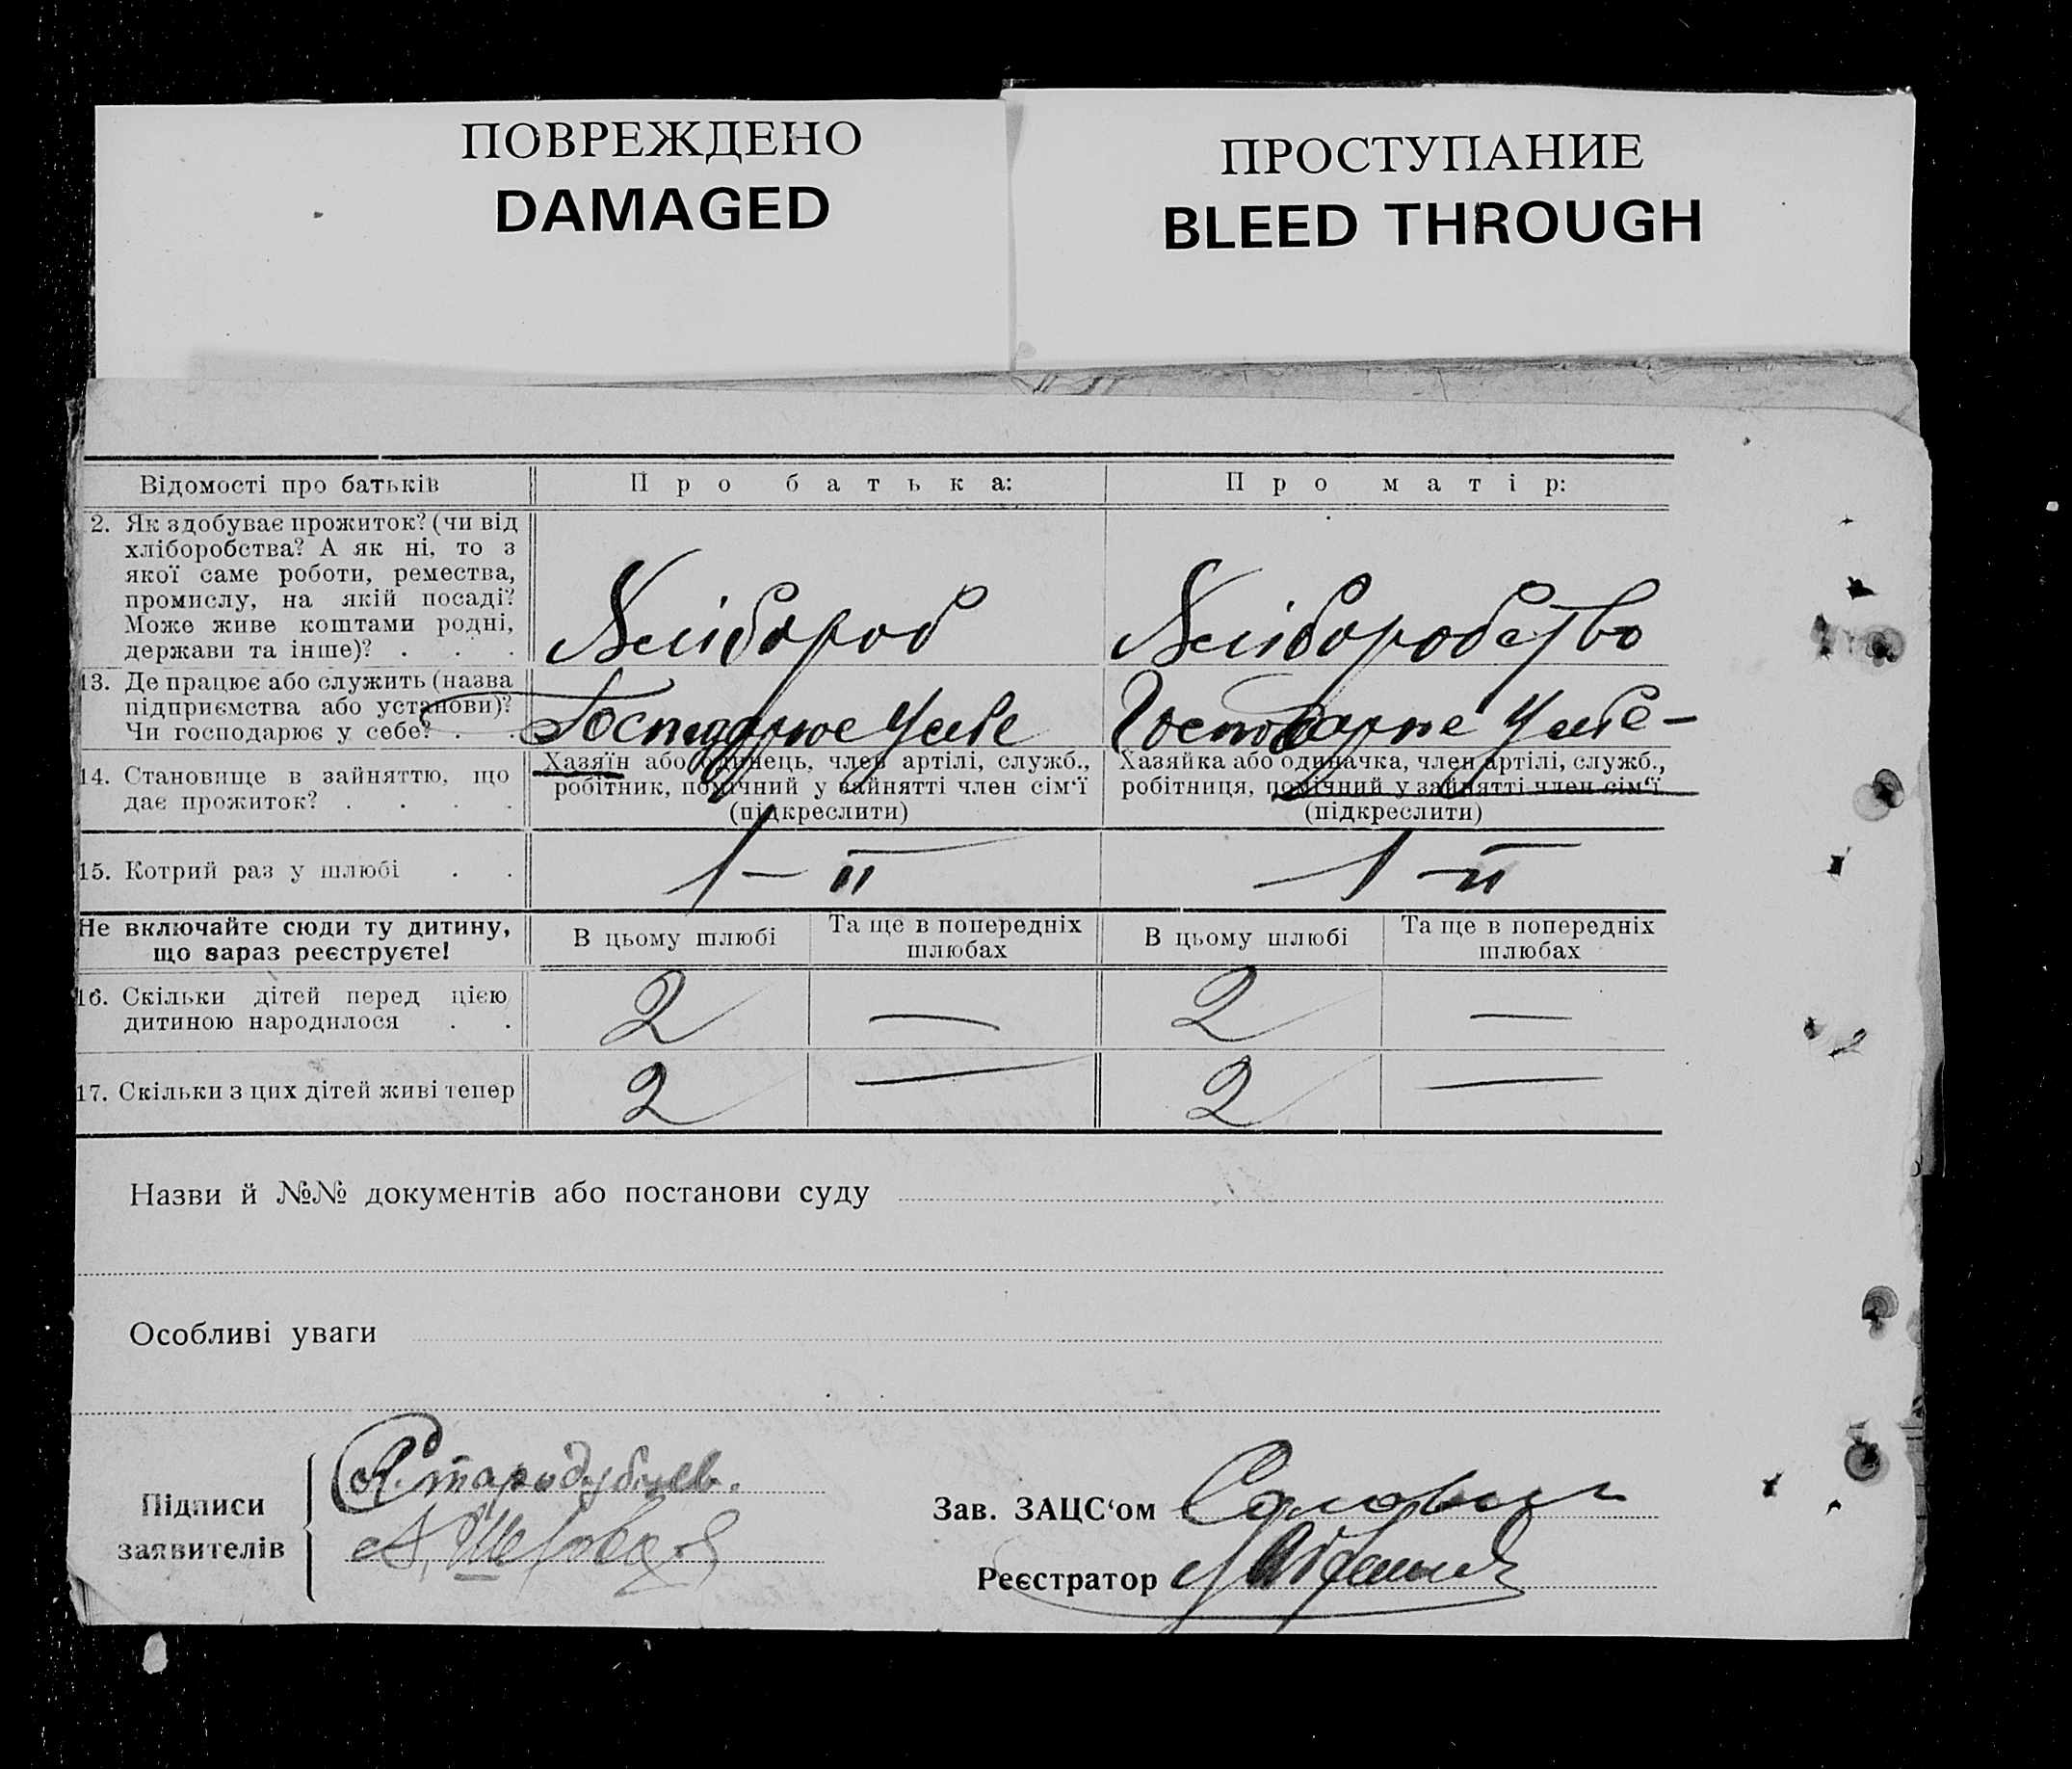 ПОВРЕЖДЕНО
DAMAGED
ПРОСТУПАНИЕ
BLEED THROUGH
Відомості про батьків
Про батька:
Про матір:
2. Як здобуває прожиток? (чи від
хліборобства? А як ні, то з
якої саме роботи, ремества,
промислу, на якій посаді?
Може живе коштами родні,
держави та інше)? . . .
Хлібороб
Хліборобство
13. Де працює або служить (назва
підприємства або установи)?
Чи господарює у себе? . .
Господарює у себе
Господарює у себе –
14. Становище в зайняттю, що
дає прожиток? . . . .
Хазяїн або одинець, член артілі, служб.,
робітник, помічний у зайнятті член сім‘ї
(підкреслити)
Хазяйка або одиначка, член артілі, служб.,
робітниця, помічний у зайнятті член сім‘ї
(підкреслити)
15. Котрий раз у шлюбі . .
1 – й
1 – й
Не включайте сюди ту дитину,
що зараз реєструєте!
В цьому шлюбі
Та ще в попередніх
шлюбах
В цьому шлюбі
Та ще в попередніх
шлюбах
16. Скільки дітей перед цією
дитиною народилося . .
2
—
2
—
17. Скільки з цих дітей живі тепер
2
—
2
—
Назви й №№ документів або постанови суду
Особливі уваги
Підписи
заявителів
Стародубцев.
Зав. ЗАЦС‘ом
Реєстратор